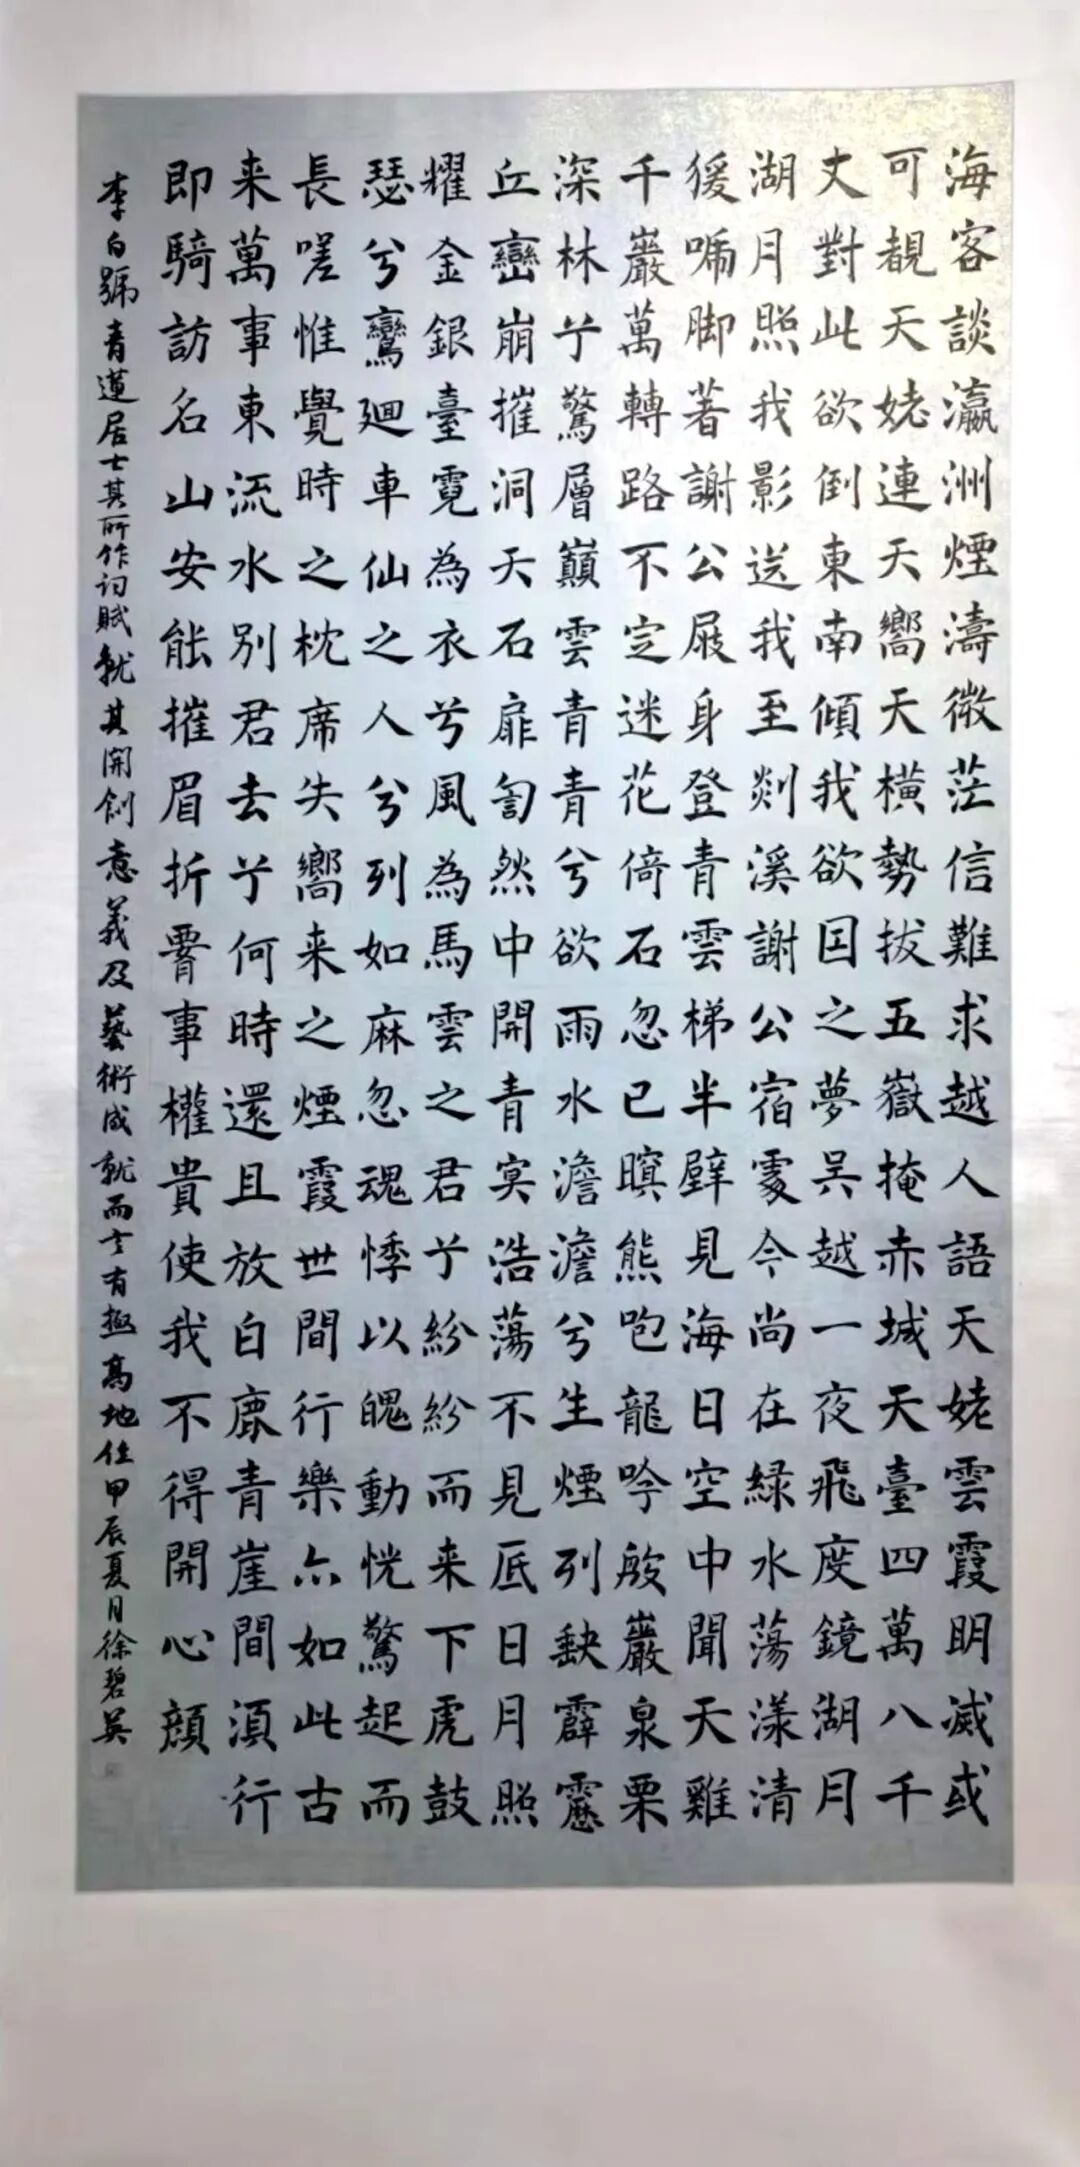 海客談瀛洲煙濤微茫信難求越人語天姥雲霞明滅或
可覩天姥連天天嚮天橫勢拔五嶽掩赤城天臺四萬八千
丈對此欲倒東南傾我欲因之夢吴越一夜飛度鏡湖月
湖月照我影送我至剡溪謝公宿處今尚在緑水蕩漾清
猨啼脚著謝公屐身登青雲梯半壁見海日空中聞天雞
千巖萬轉路不定迷花倚石忽已暝熊咆龍吟殷巖泉栗
深林兮驚層巔雲青青兮欲雨水澹澹兮生煙列缺霹靂
丘巒崩摧洞天石扉訇然中開青冥浩蕩不見底日月照
耀金銀臺霓為衣兮風為馬雲之君兮紛紛而来下虎鼓
瑟兮鸞迴車仙之人兮列如麻忽魂悸以魄動恍驚起而
長嗟惟覺時之枕席失嚮来之煙霞世間行樂亦如此古
来萬事東流水別君去兮何時還且放白鹿青崖間須行
即騎訪名山安能摧眉折腰事權貴使我不得開心顔
李白號青蓮居士其所作词賦就其開創意義及藝術成就而言有極高地位甲辰夏月徐碧英